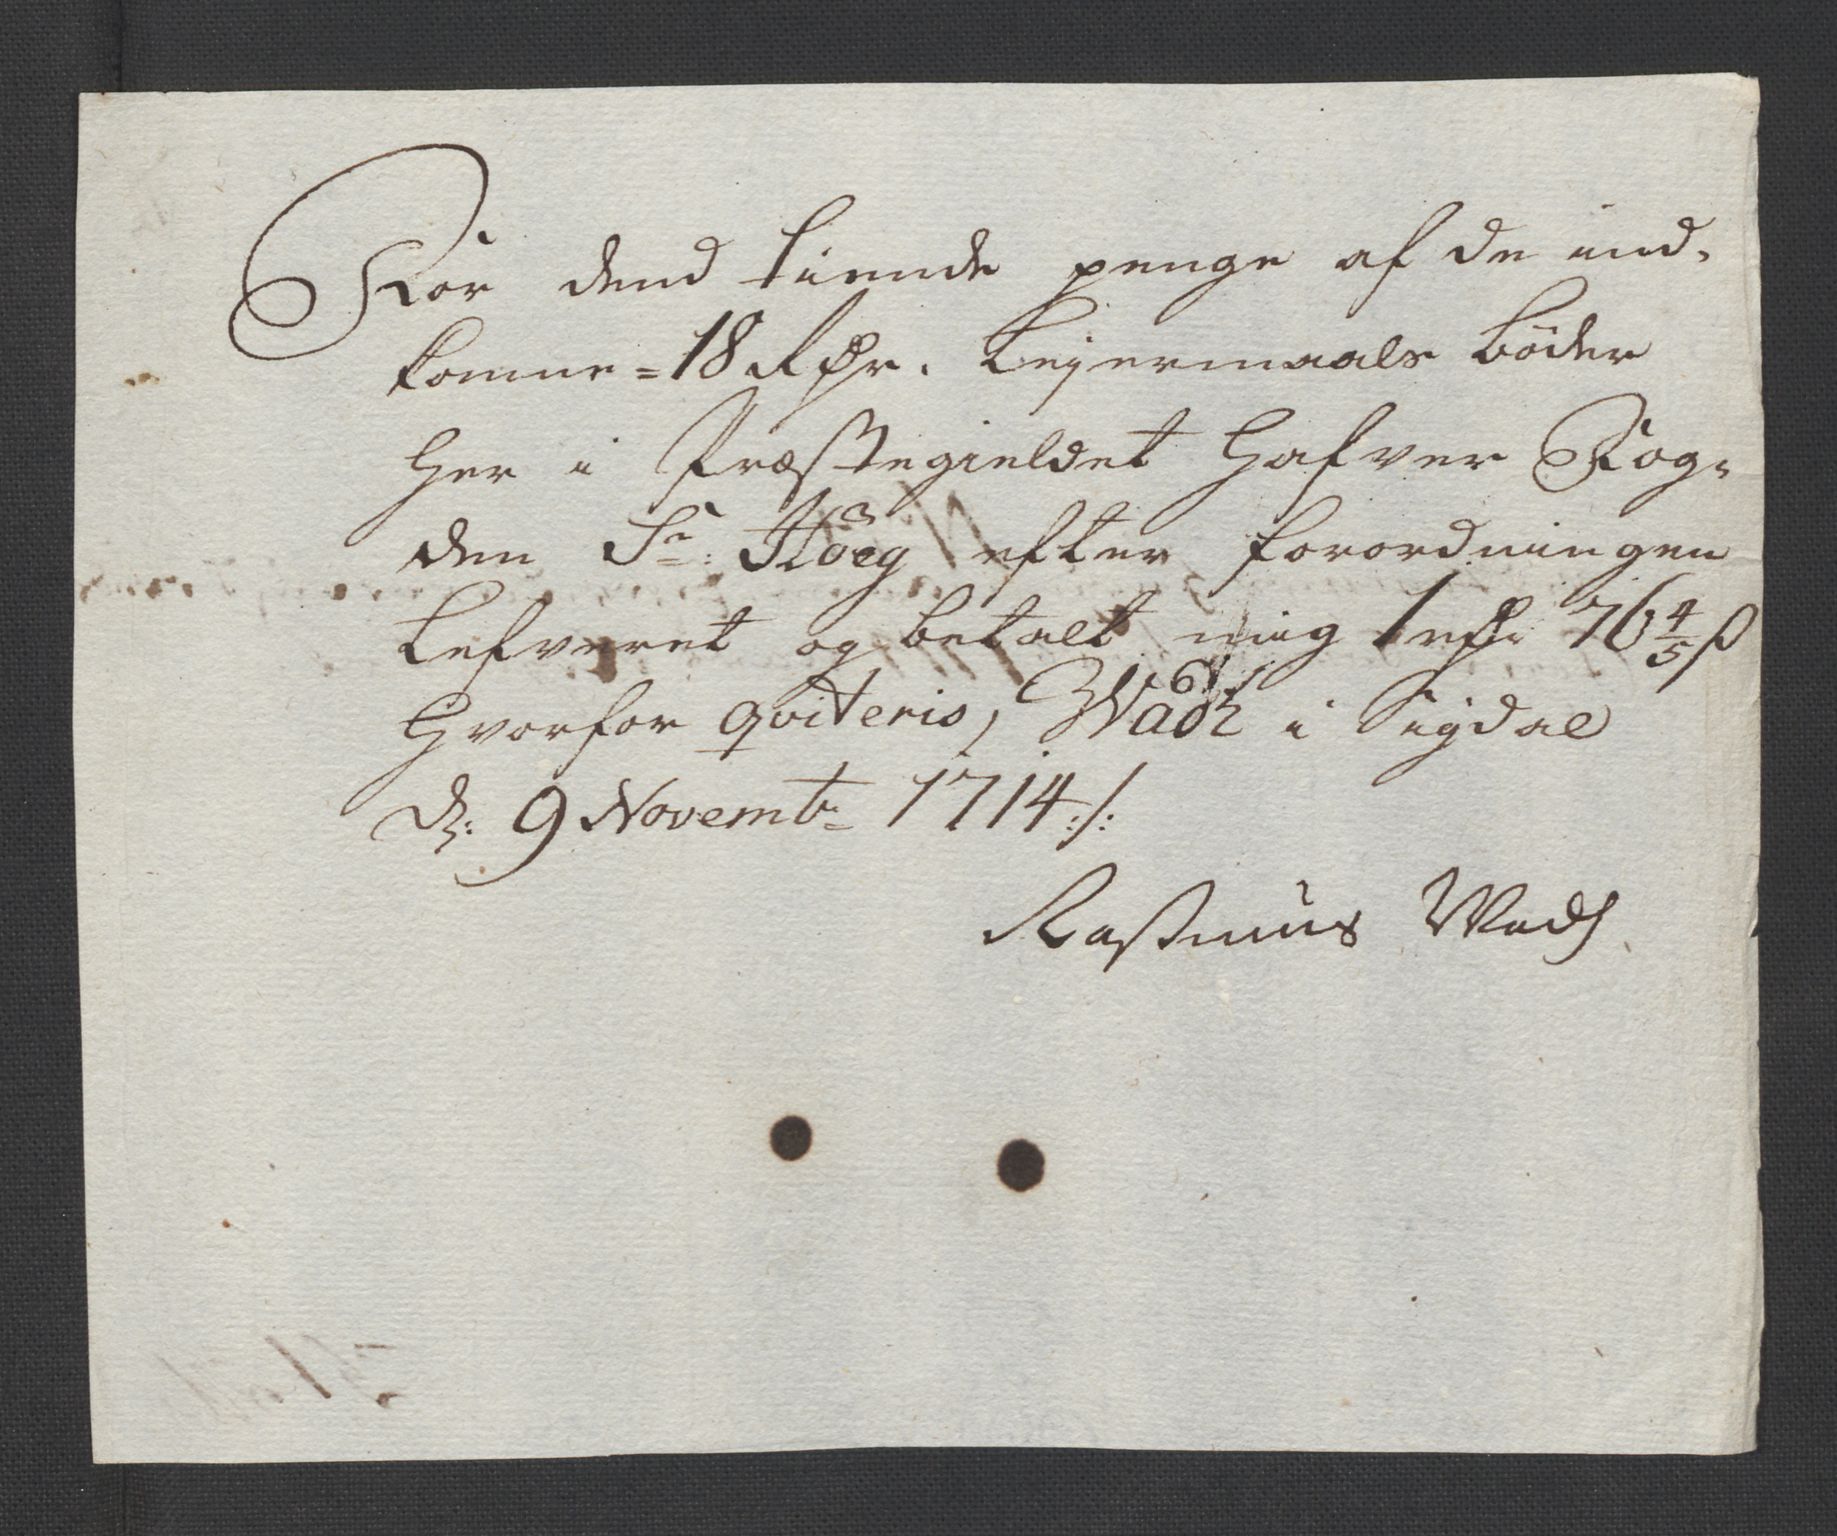 For dend tiende penge af de ind-
komne = 18 Rdr. Lejermaals bøder
her i Præstegieldet hafver Fog-
den Sr: Høeg efter forordningen
lefveret og betalt mig 1 rdr 76 4/5 ß
hvorfor qviteris, Wadh i Sigdal
d: 9 Novembr 1714 ./.
Rasmus Wadh